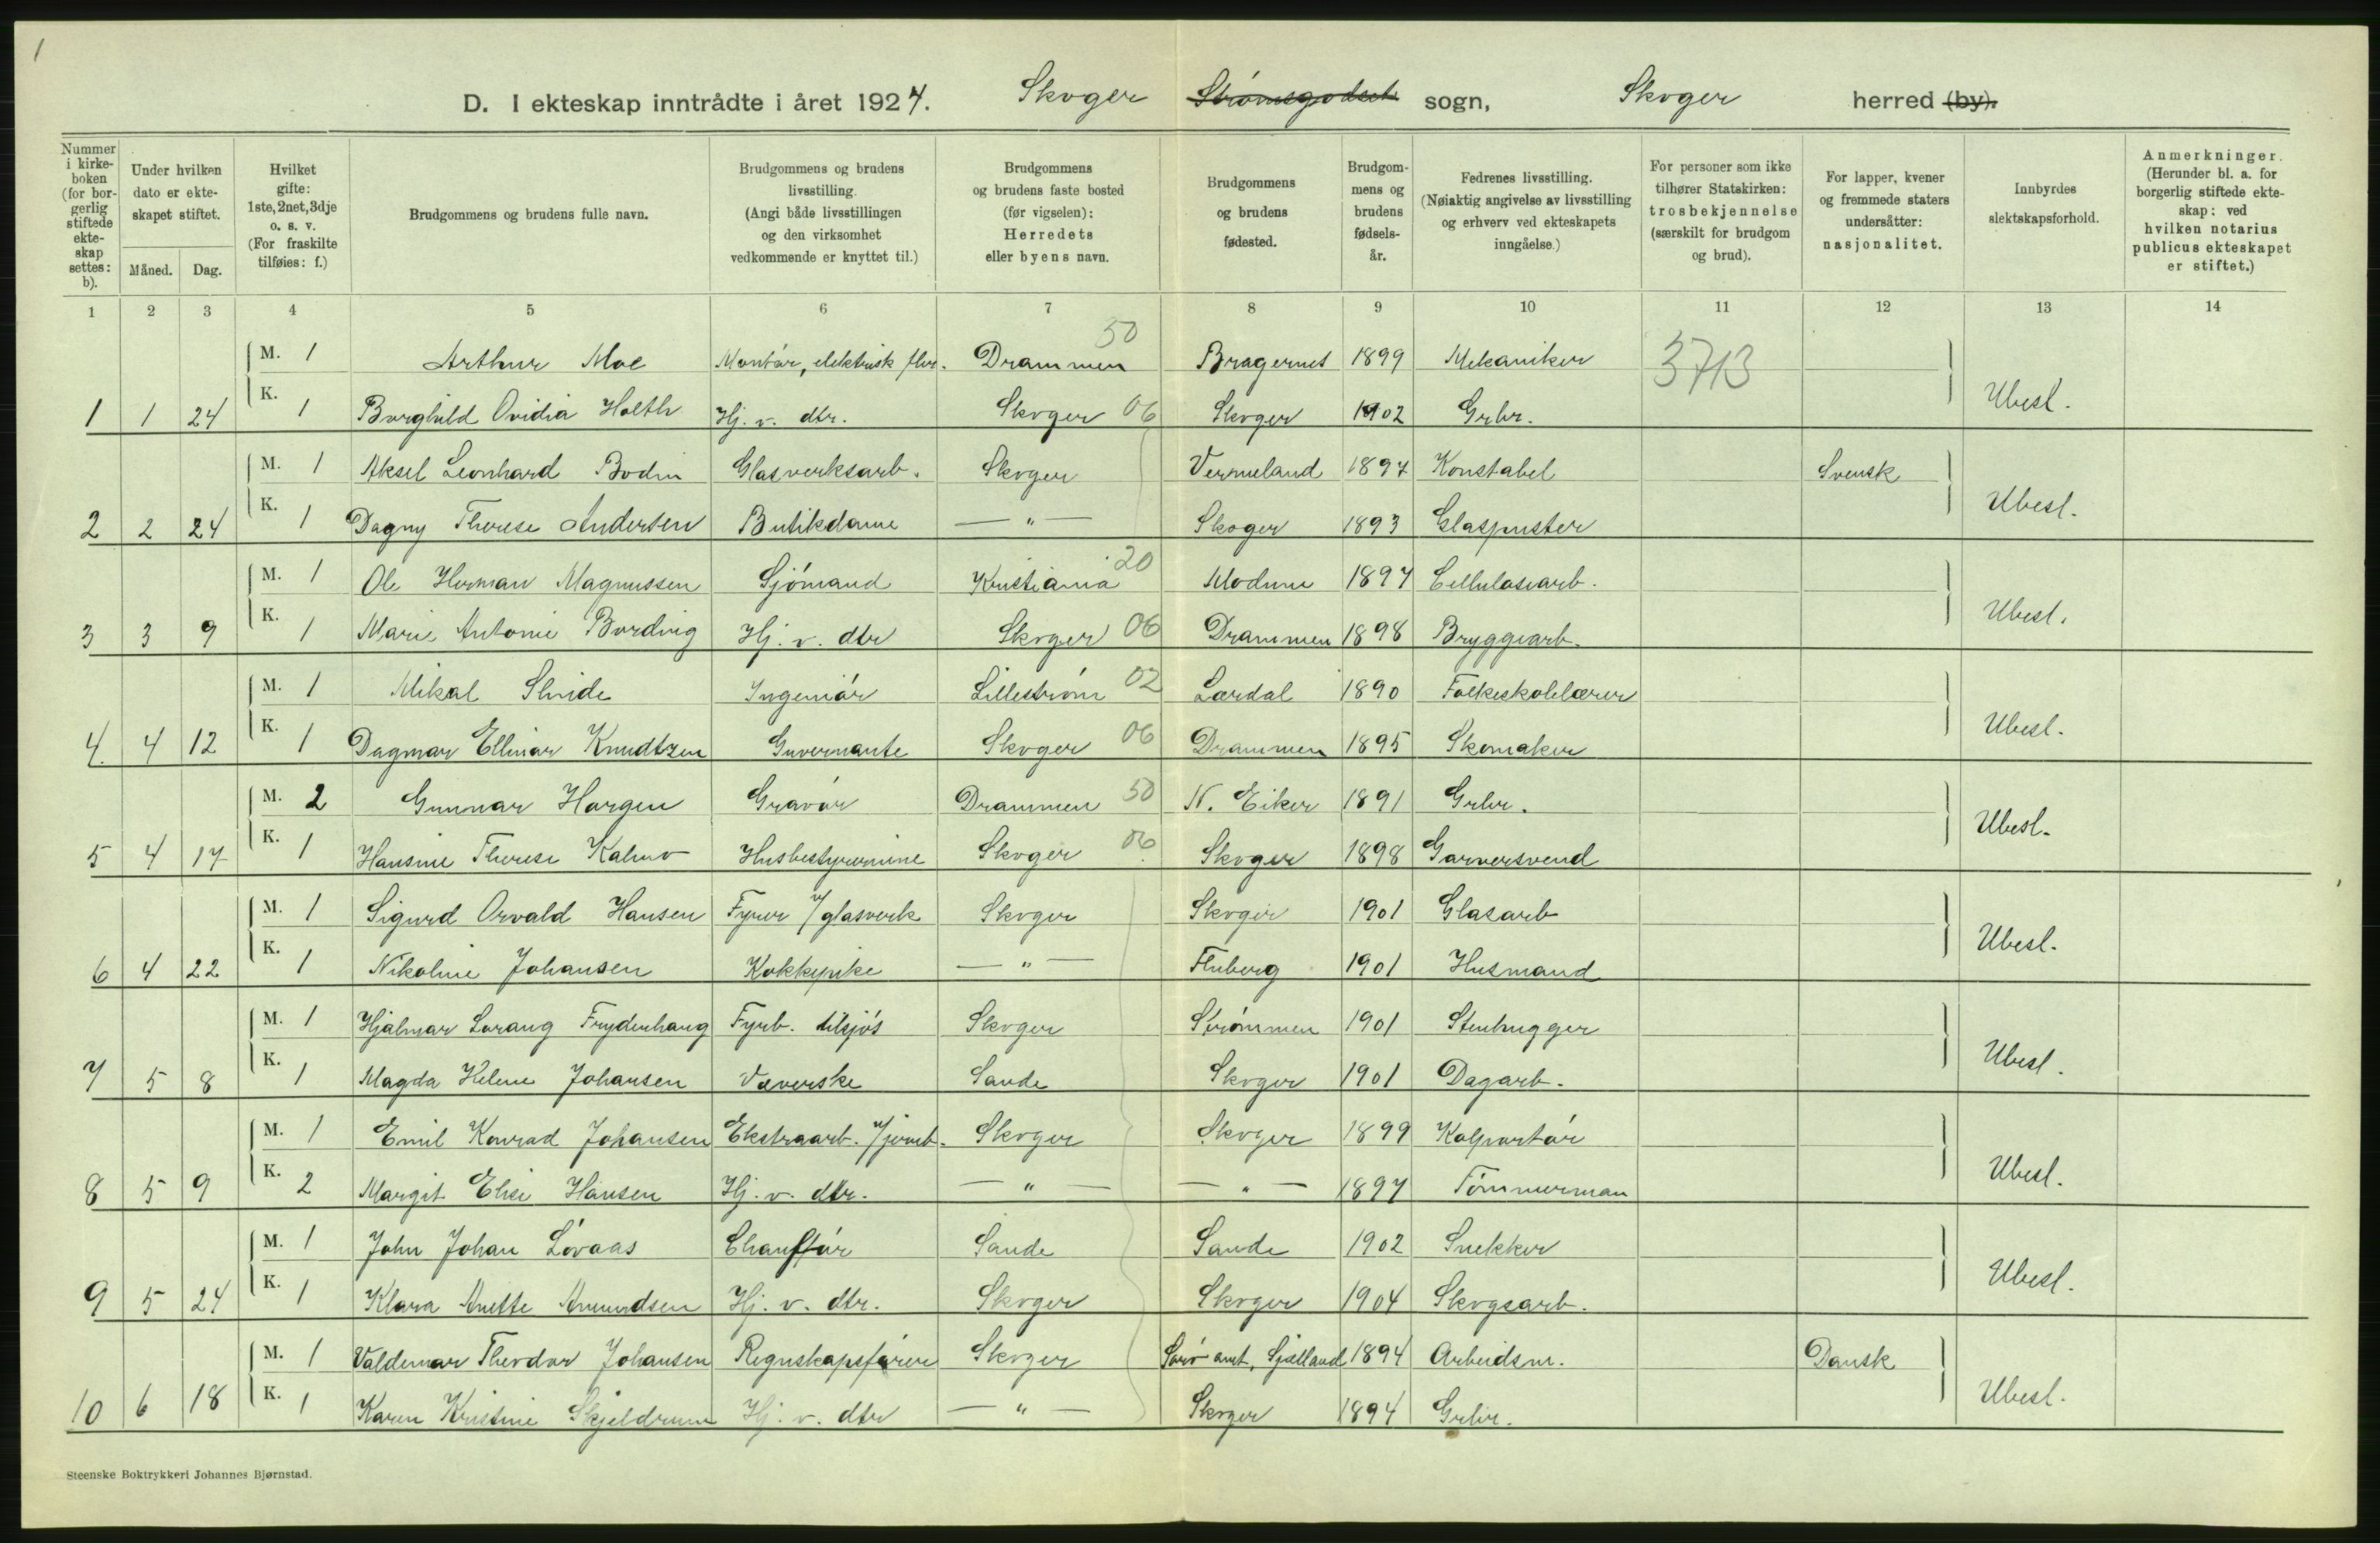 1
D. I ekteskap inntrådte i året 1924. Skoger Strømsgodset sogn, Skoger herred (by).
Nummer i kirkeboken (for borgerlig stiftede ekteskap settes: b).
Under hvilken dato er ekteskapet stiftet.
Måned. Dag.
Hvilket gifte: 1ste, 2net, 3dje o. s. v. (For fraskilte tilføies: f.)
Brudgommens og brudens fulle navn.
Brudgommens og brudens livsstilling. (Angi både livsstillingen og den virksomhet vedkommende er knyttet til.)
Brudgommens og brudens faste bosted (før vigselen): Herredets eller byens navn.
Brudgommens og brudens fødested.
Brudgommens og brudens fødselsår.
Fedrenes livsstilling. (Nøiaktig angivelse av livsstilling og erhverv ved ekteskapets inngåelse.)
For personer som ikke tilhører Statskirken: trosbekjennelse (særskilt for brudgom og brud).
For lapper, kvener og fremmede staters undersåtter: nasjonalitet.
Innbyrdes slektskapsforhold.
Anmerkninger. (Herunder bl. a. for borgerlig stiftede ekteskap: ved hvilken notarius publicus ekteskapet er stiftet.)
1 2 3 4 5 6 7 8 9 10 11 12 13 14
M. 1 Arthur Moe Montør, elektrisk Drammen 50 Bragernes 1899 Mekaniker 3713
1 1 24 K. 1 Borghild Ovidia Holth Hj. v. dtr. Skoger 06 Skoger 1902 Grbr. Ubesl.
M. 1 Aksel Leonhard Bodin Glasverksarb. Skoger Vermeland 1897 Konstabel Svensk
2 2 24 K. 1 Dagny Therese Andersen Butikdame — " — Skoger 1893 Glaspuster Ubesl.
M. 1 Ole Herman Magnussen Sjömand Kristiania 20 Modum 1897 Cellulosearb.
3 3 9 K. 1 Marie Antonie Bording Hj. v. dtr Skoger 06 Drammen 1898 Bryggearb. Ubesl.
M. 1 Mikal Ingeniør Lillestrøm 02 Lærdal 1890 Folkeskolelærer
4. 4 12 K. 1 Dagmar Ellinor Knudtzen Guvernante Skoger 06 Drammen 1895 Skomaker Ubesl.
M. 2 Gunnar Horgen Gravør Drammen 50 N. Eiker 1891 Grbr.
5 4 17 K. 1 Hansine Therese Husbestyrerinne Skoger 06 Skoger 1898 Garversvend Ubesl.
M. 1 Sigurd Orvald Hansen Fyrer v/glasverk Skoger Skoger 1901 Glasarb
6 4 22 K. 1 Nikoline Johansen Kokkepike — " — Fluberg 1901 Husmand Ubesl.
M. 1 Hjalmar Lorang Frydenhaug Fyrb. tilsjøs Skoger Strømmen 1901 Stenhugger
7 5 8 K. 1 Magda Helene Johansen Væverske Sande Skoger 1901 Dagarb. Ubesl.
M. 1 Emil Konrad Johansen Ekstraarb. v/jernb. Skoger Skoger 1899 Kolportør
8 5 9 K. 2 Margit Elise Hansen Hj. v. dtr. — " — — " — 1897 Tømmerman Ubesl.
M. 1 John Johan Løvaas Chauffør Sande Sande 1902 Snekker
9 5 24 K. 1 Klara Anette Amundsen Hj. v. dtr. Skoger Skoger 1904 Skogsarb. Ubesl.
M. 1 Valdemar Theodor Johansen Regnskapsfører Skoger Sorø amt, Sjælland 1894 Arbeidsm. Dansk
10 6 18 K. 1 Karen Kristine Skjeldrum Hj. v. dtr — " — Skoger 1894 Grbr. Ubesl.
Steenske Boktrykkeri Johannes Bjørnstad.